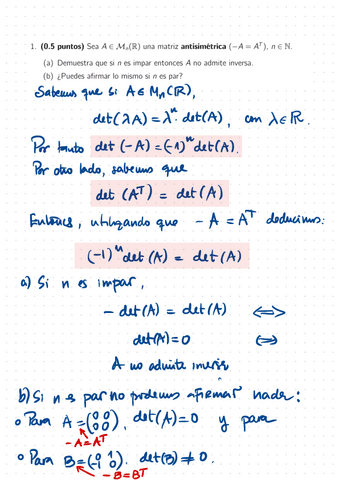 1. (0.5 puntos) Sea A ∈ Mₙ(ℝ) una matriz antisimétrica (−A = Aᵀ), n ∈ ℕ.
(a) Demuestra que si n es impar entonces A no admite inversa.
(b) ¿Puedes afirmar lo mismo si n es par?
Sabemos que si A ∈ Mₙ(ℝ),
det(λA) = λⁿ · det(A), con λ ∈ ℝ.
Por tanto det(−A) = (−1)ⁿ det(A).
Por otro lado, sabemos que
det(Aᵀ) = det(A)
Entonces, utilizando que −A = Aᵀ deducimos:
(−1)ⁿ det(A) = det(A)
a) Si n es impar,
− det(A) = det(A) ⟺
det(A) = 0 ⟺
A no admite inversa
b) Si n es par no podemos afirmar nada:
• Para A = (0 0; 0 0), det(A) = 0 y para
−A = Aᵀ
• Para B = (0 1; −1 0). det(B) ≠ 0.
−B = Bᵀ